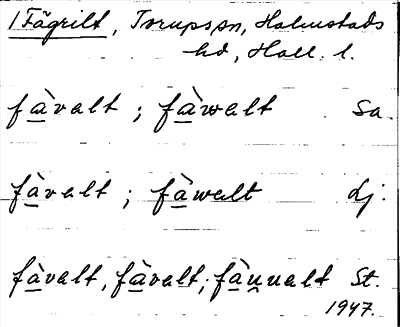 1 Fägrilt, Torupssn, Halmstads
hd, Hall. l.
fàvalt ; fàwalt Sa.
fàvalt ; fàwalt Lj.
fàvalt, fàvalt; fàu̯ualt St.
1947.